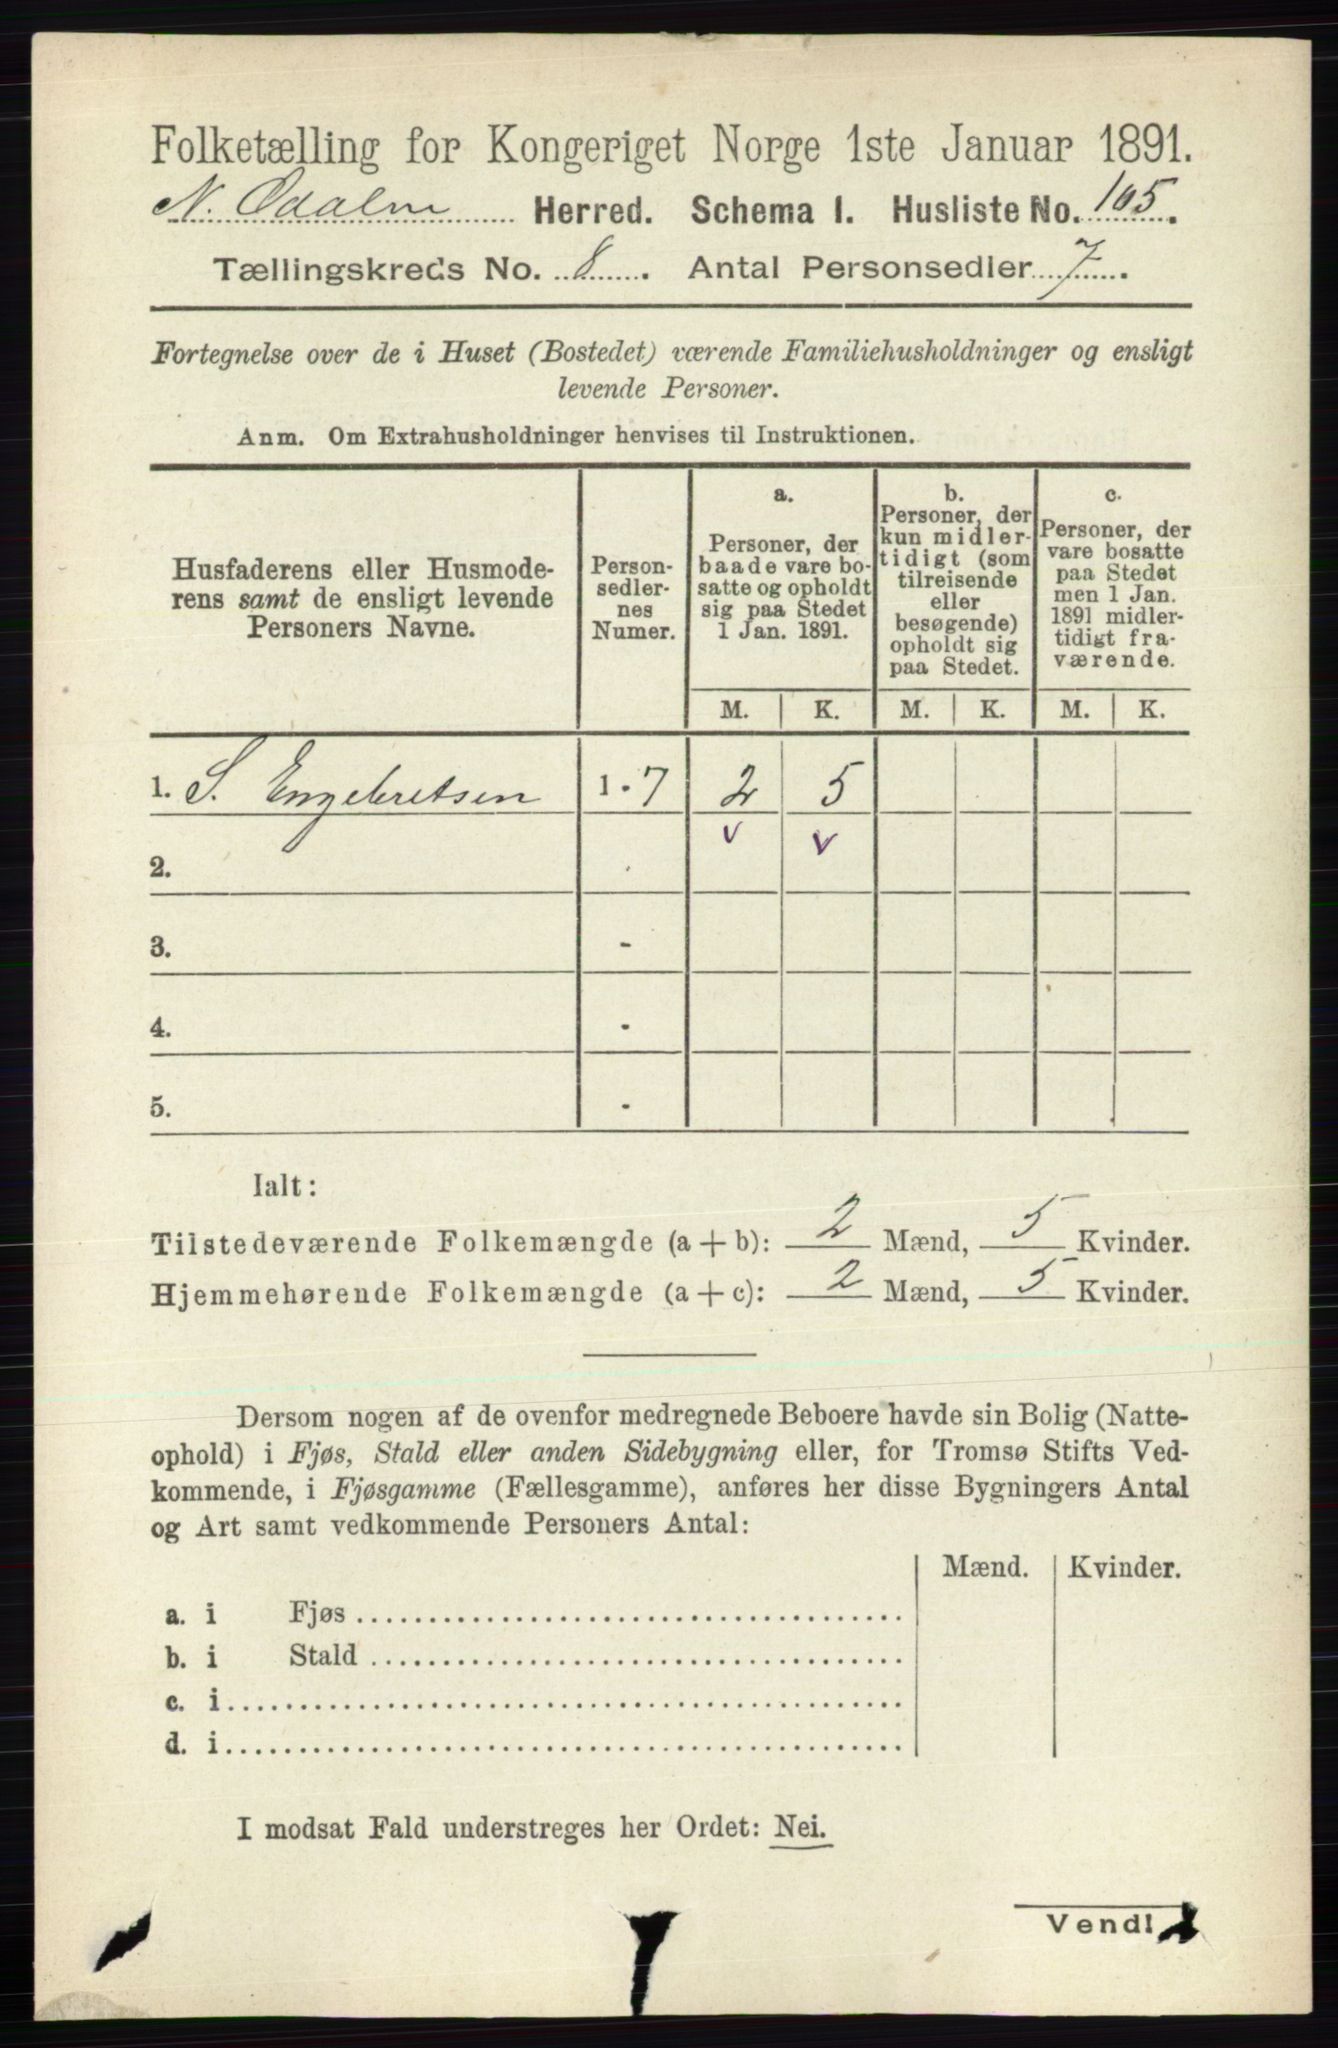 Folketælling for Kongeriget Norge 1ste Januar 1891.
N. Odalen Herred. Schema I. Husliste No. 105.
Tællingskreds No. 8. Antal Personsedler 7.
Fortegnelse over de i Huset (Bostedet) værende Familiehusholdninger og ensligt
levende Personer.
Anm. Om Extrahusholdninger henvises til Instruktionen.
Husfaderens eller Husmode-
rens samt de ensligt levende
Personers Navne.
Person-
sedler-
nes
Numer.
a.
Personer, der
baade vare bo-
satte og opholdt
sig paa Stedet
1 Jan. 1891.
b.
Personer, der
kun midler-
tidigt (som
tilreisende
eller
besøgende)
opholdt sig
paa Stedet.
c.
Personer, der
vare bosatte
paa Stedet
men 1 Jan.
1891 midler-
tidigt fra-
værende.
M. K. M. K. M. K.
1. S. Engebretsen 1 - 7 2 5
v v
2.
3. -
4. -
5. -
Ialt:
Tilstedeværende Folkemængde (a + b): 2 Mænd, 5 Kvinder.
Hjemmehørende Folkemængde (a + c): 2 Mænd, 5 Kvinder.
Dersom nogen af de ovenfor medregnede Beboere havde sin Bolig (Natte-
ophold) i Fjøs, Stald eller anden Sidebygning eller, for Tromsø Stifts Ved-
kommende, i Fjøsgamme (Fællesgamme), anføres her disse Bygningers Antal
og Art samt vedkommende Personers Antal:
Mænd. Kvinder.
a. i Fjøs
b. i Stald
c. i
d. i
I modsat Fald understreges her Ordet: Nei.
Vend!